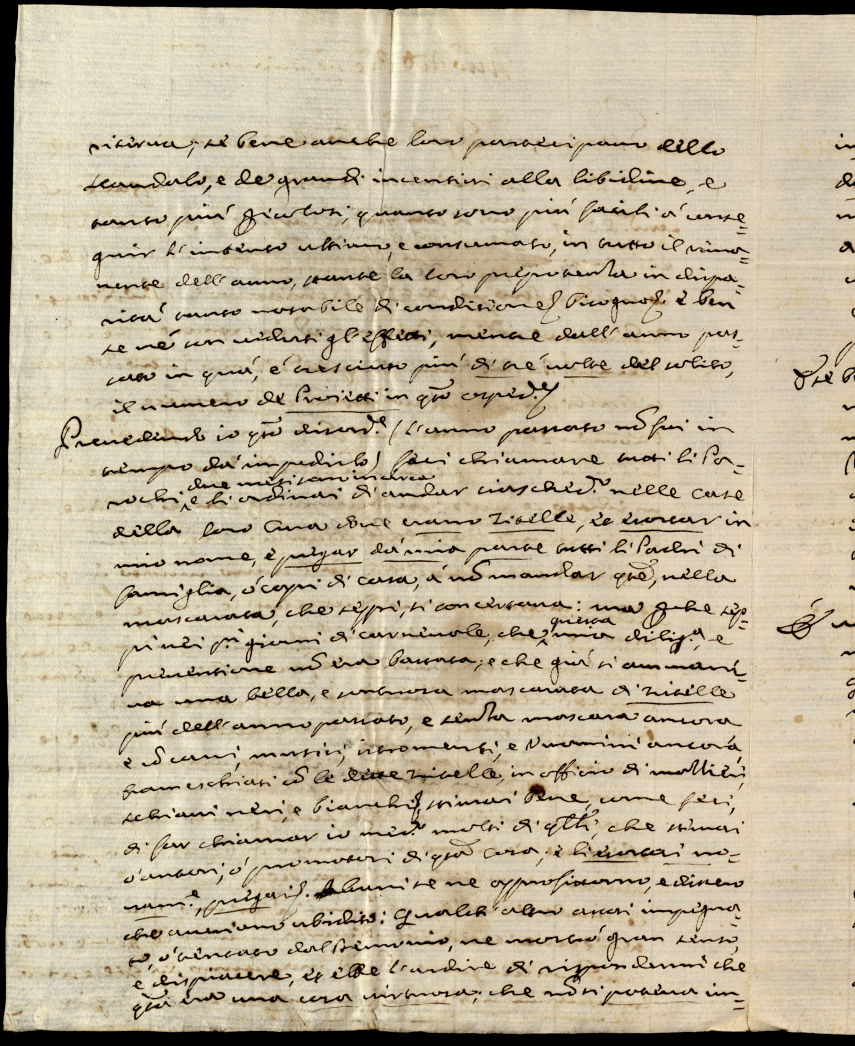 riserua; se bene anche loro partecipano dello
scandalo, e de grandi incentiui alla libidine, e
tanto più gicolosi, quanto sono più facili à conse=
guir l'intento ultimo, e consumato, in tutto il rima=
nente dell'anno, stante la loro prepotenza in dispa=
rità tanto notabile di conditione, bisogno, e ben
se ne son ueduti gl'effetti, mentre dall'anno pas=
sato in quà, è cresciuto più di tre uolte del solito,
il numero de Proietti in qto osped.e
Preuedendo io qto disord.e (l'anno passato nõ fui in
tempo da impedirlo) feci chiamare tutti li Pa=
rochi, due mesi sono in circa
e li ordinai di andar ciasched.o nelle case
della loro Cura doue erano Zitelle, et esortar in
mio nome, e pregar da mia parte tutti li Padri di
famiglia, ò capi di casa, à nõ mandar qste, nella
mascarata, che seppi, si concertaua: ma perche sep=
pi nei p.mi giorni di carneuale, che questa mia dilig.a, e
preuentione nõ era bastata, e che già si ammani=
ua una bella, e sontuosa mascarata di Zitelle
più dell'anno passato, e senza mascara ancora
e cõ carri, musici, istromenti, e Huomini ancora
frameschiati cõ le dette Zitelle, in officio di
schiaui neri, e bianchi, stimai bene, come feci,
di far chiamar io med.o molti di qlli, che stimai
ò autori, ò promotori di qta cosa, e li esortai no=
uam.e, e pregai. Alcuni se ne approfittorno, e dissero
che aueriano ubidito: Qualch'altro assai impegna=
to, ò tentato dal Demonio, ne mostrò gran senso,
e dispiacere, et ebbe l'ardire di rispondermi che
qta era una cosa uirtuosa, che nõ si poteua im=